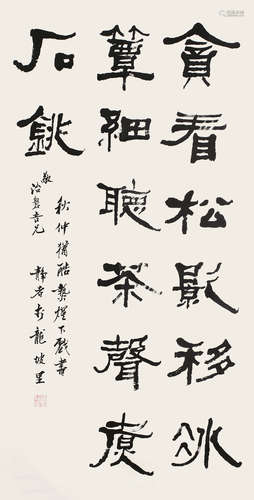 貪看松影移冰
簟細聽茶聲煮
石銚
吾兄
秋仲猶酷熱燈下戲書
靜者於龍坡里